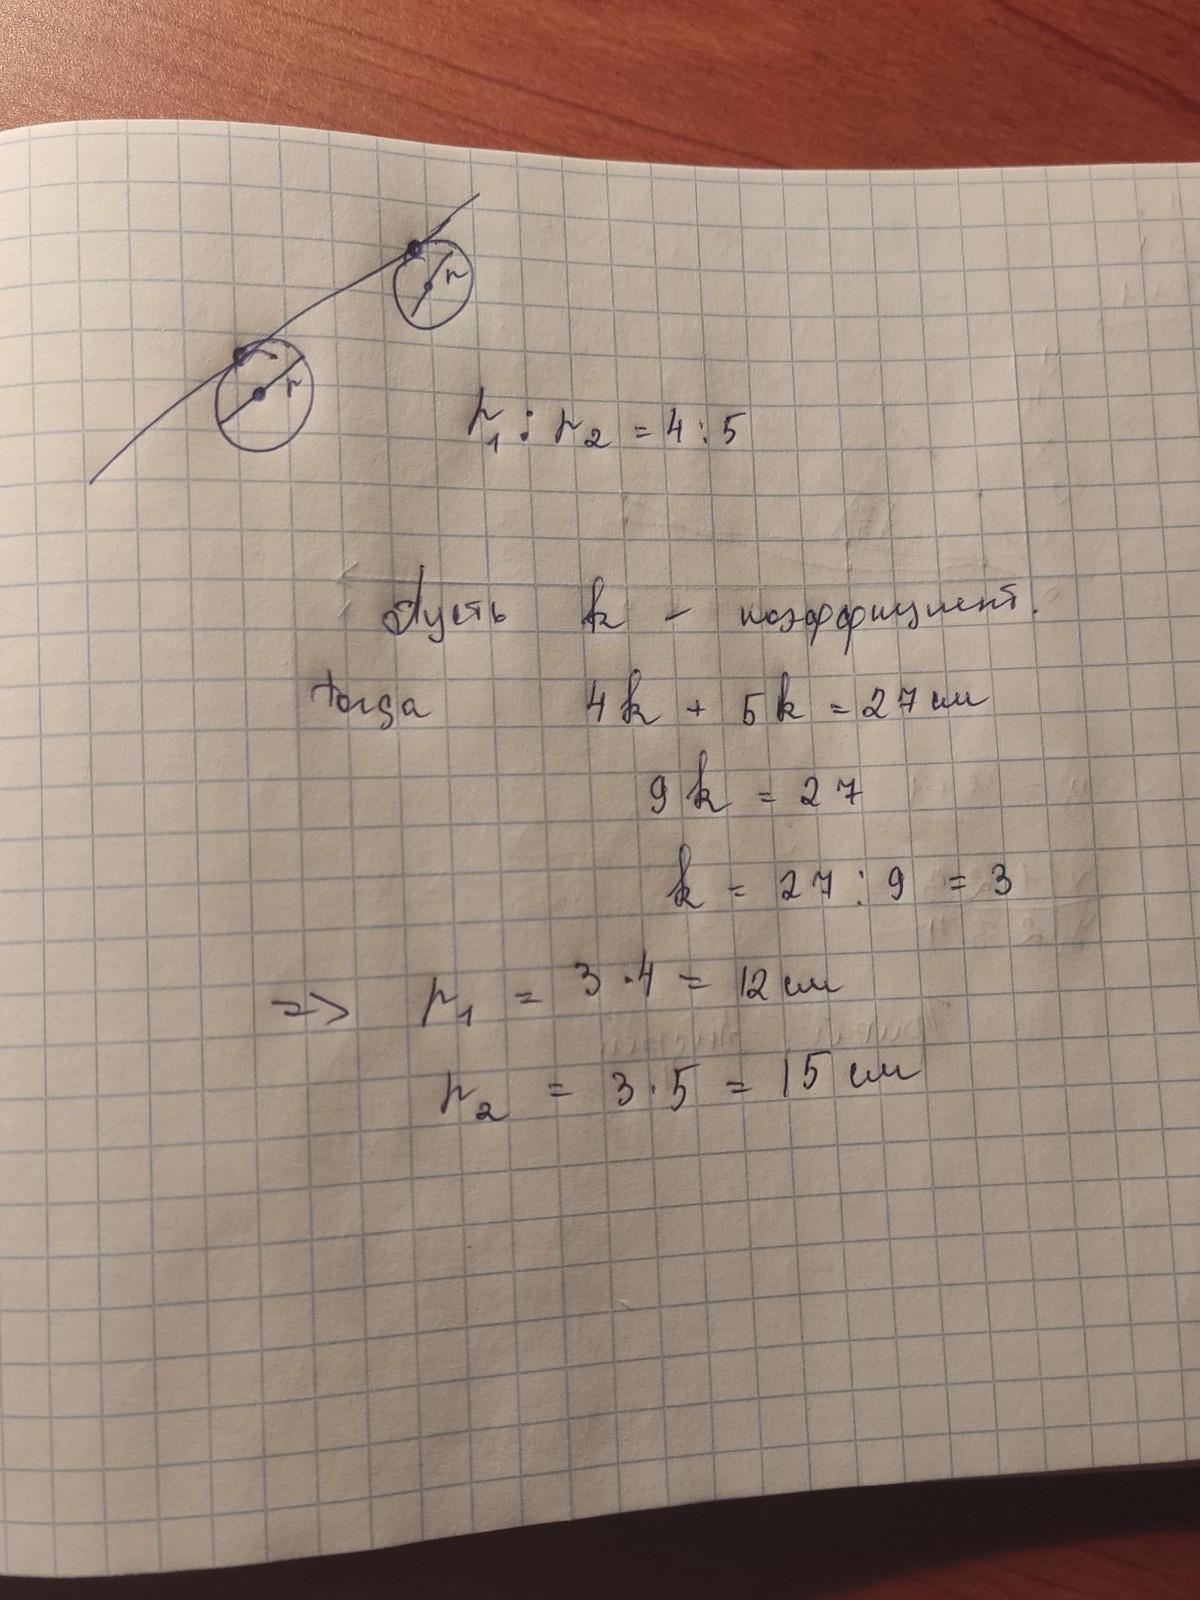 r
r
r₁ : r₂ = 4 : 5
Пусть k - коэффициент.
тогда 4k + 5k = 27 см
9k = 27
k = 27 : 9 = 3
=> r₁ = 3 · 4 = 12 см
r₂ = 3 · 5 = 15 см